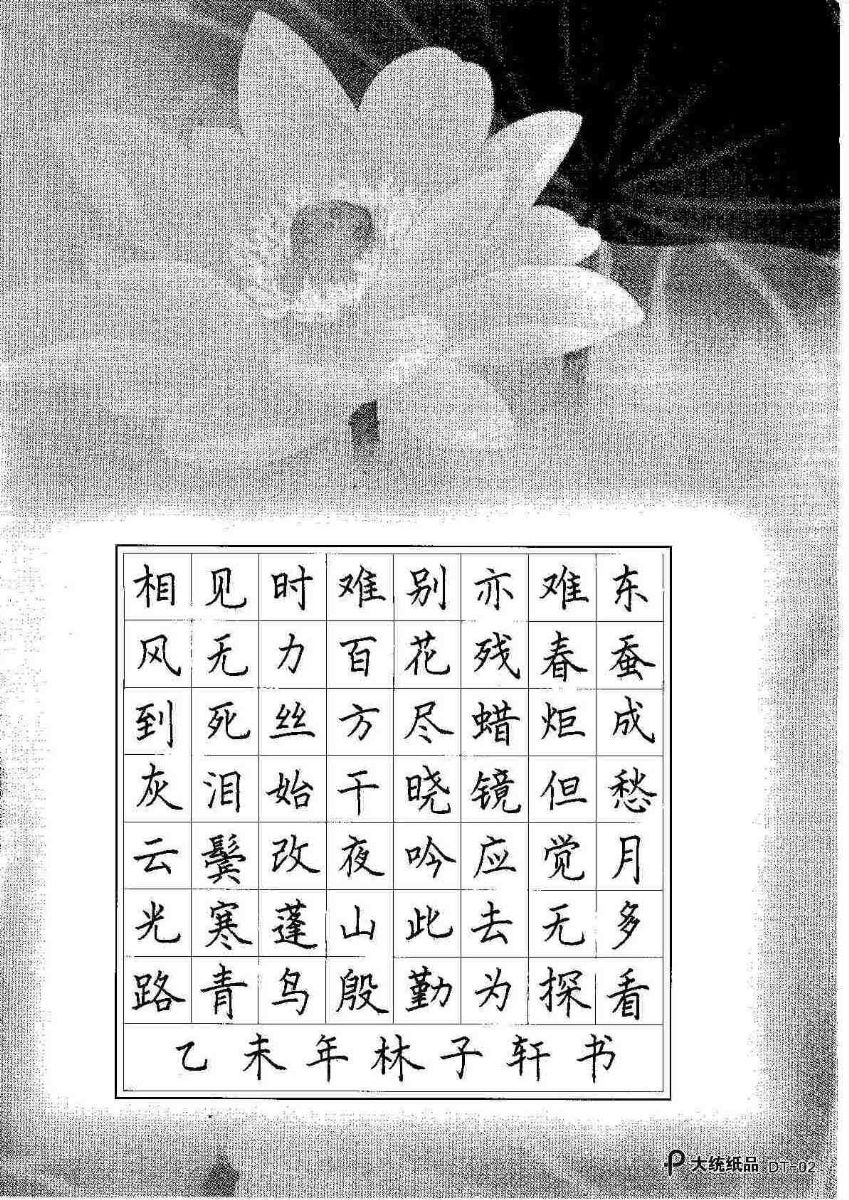 相见时难别亦难东
风无力百花残春蚕
到死丝方尽蜡炬成
灰泪始干晓镜但愁
云鬓改夜吟应觉月
光寒蓬山此去无多
路青鸟殷勤为探看
乙未年林子轩书
大统纸品 DT-02